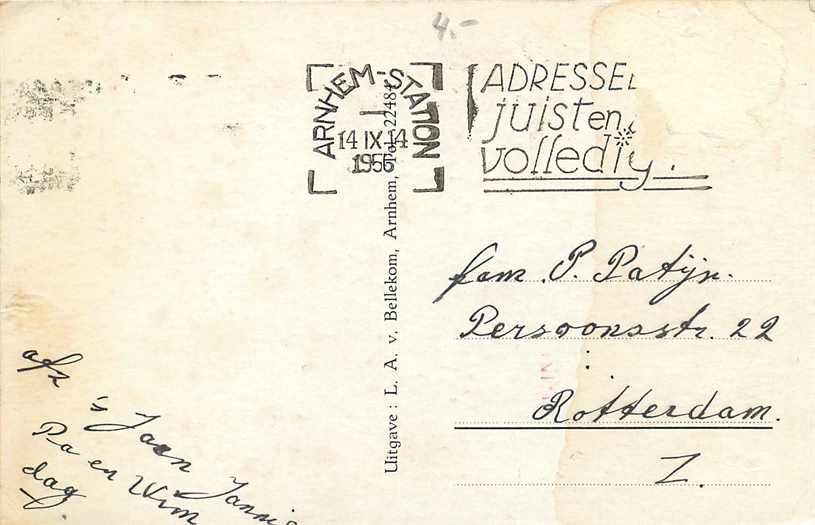 4.-
ARNHEM-STATION
14 IX 14
1956
ADRESSE
juist en
volledig.
Uitgave: L. A. v. Bellekom, Arnhem, Tel. 22484
fam. P. Patijn.
Persoonsstr. 22
Rotterdam.
Z.
afz
's Jaan Jannie
Pa en Wim
dag